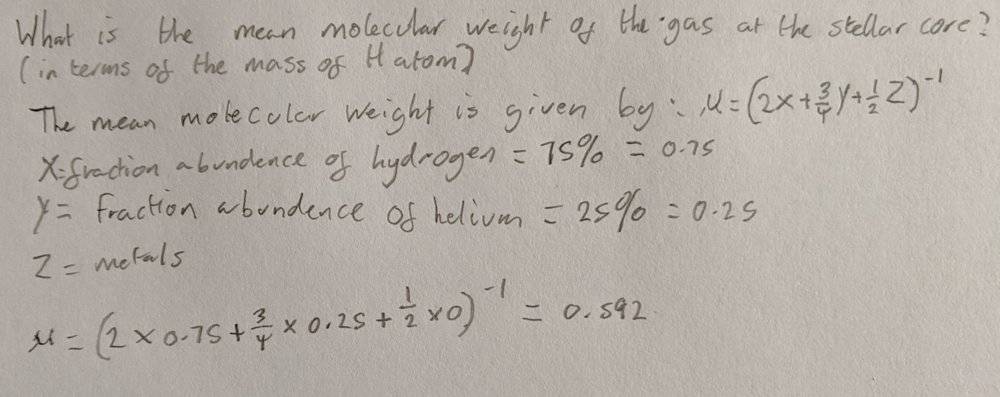 What is the mean molecular weight of the gas at the stellar core?
(in terms of the mass of H atom)
The mean molecular weight is given by: μ=(2X+3/4Y+1/2Z)^-1
X=fraction abundence of hydrogen = 75% = 0.75
Y= fraction abundence of helium = 25% = 0.25
Z = metals
μ = (2 × 0.75 + 3/4 × 0.25 + 1/2 × 0)^-1 = 0.592